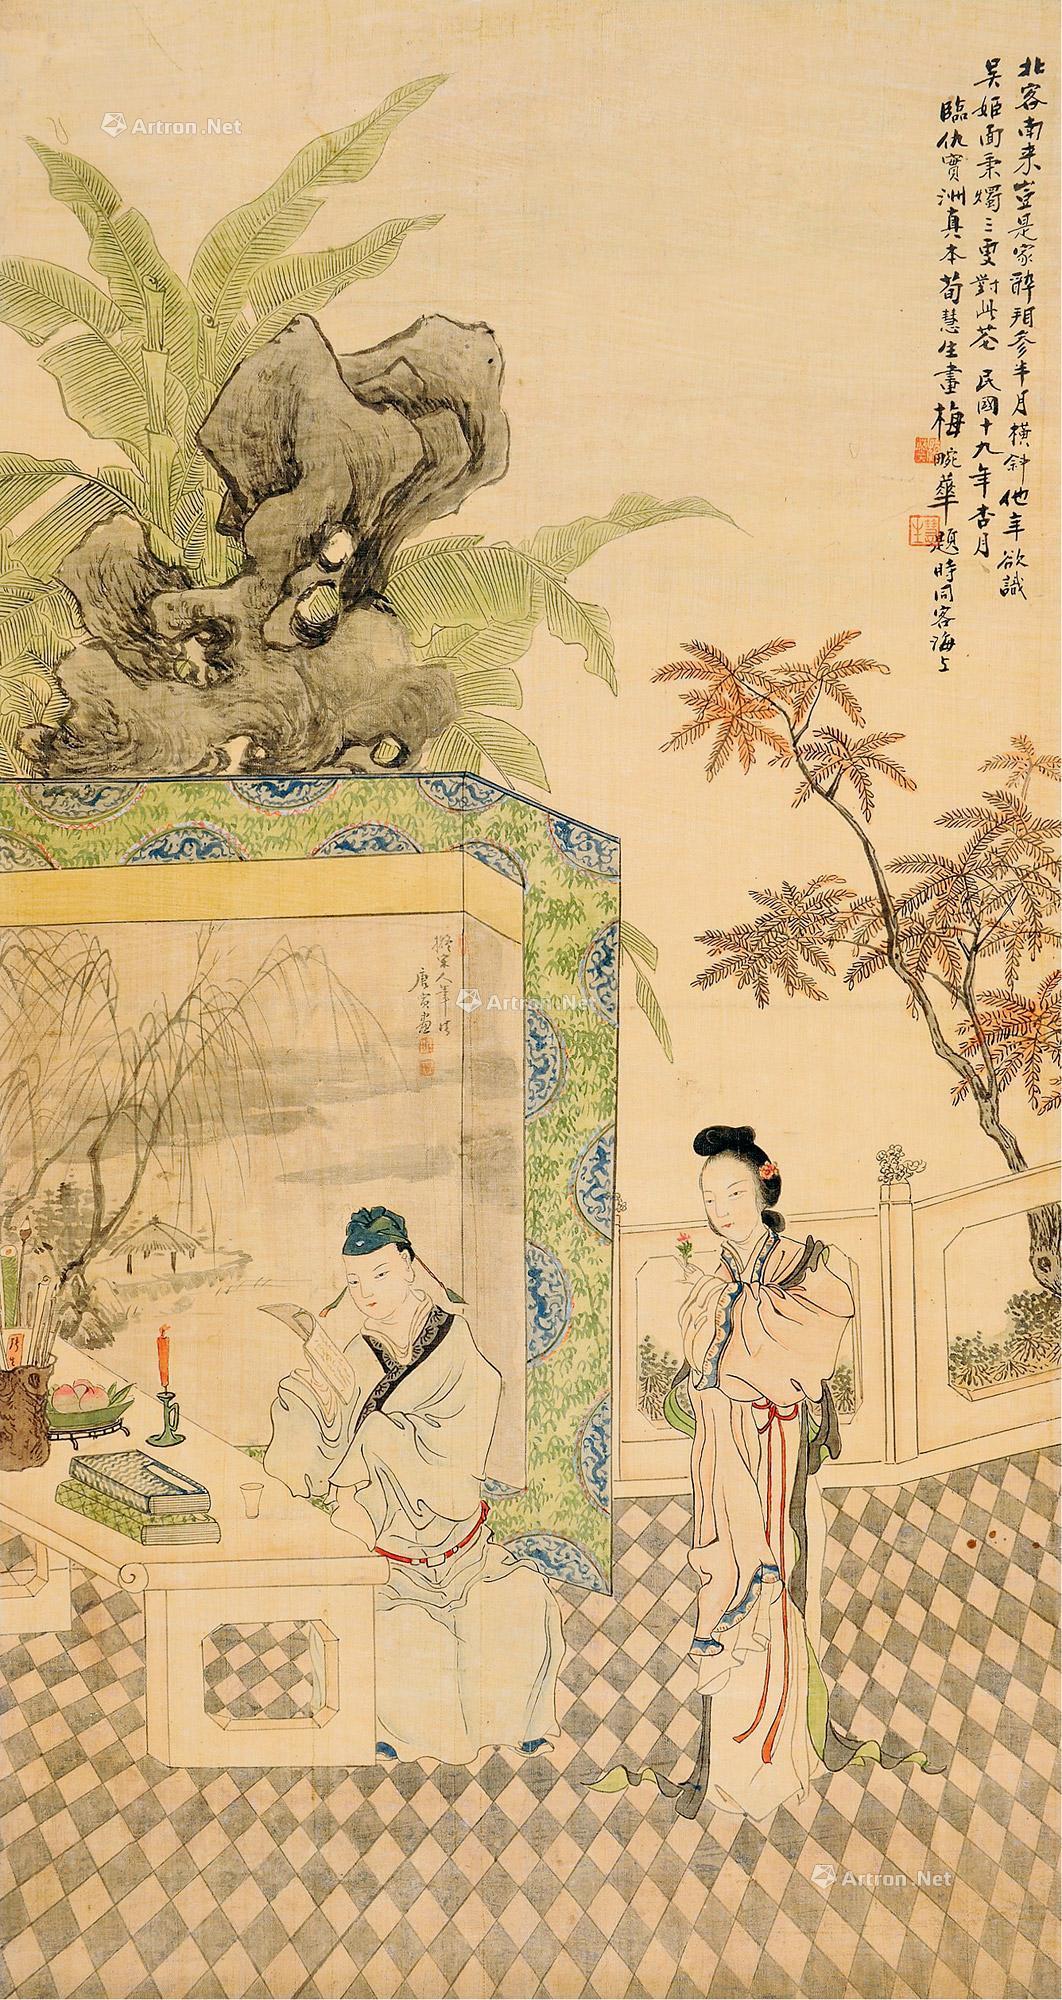 北客南来豈是家醉拈參半月橫斜他年欲識
吳姬面秉燭三更對此花 民國十九年杏月
臨仇實洲真本荀慧生畫梅畹華題時同客海上
擬宋人筆法
唐寅畫
Artron.Net
Artron.Net
Artron.Net